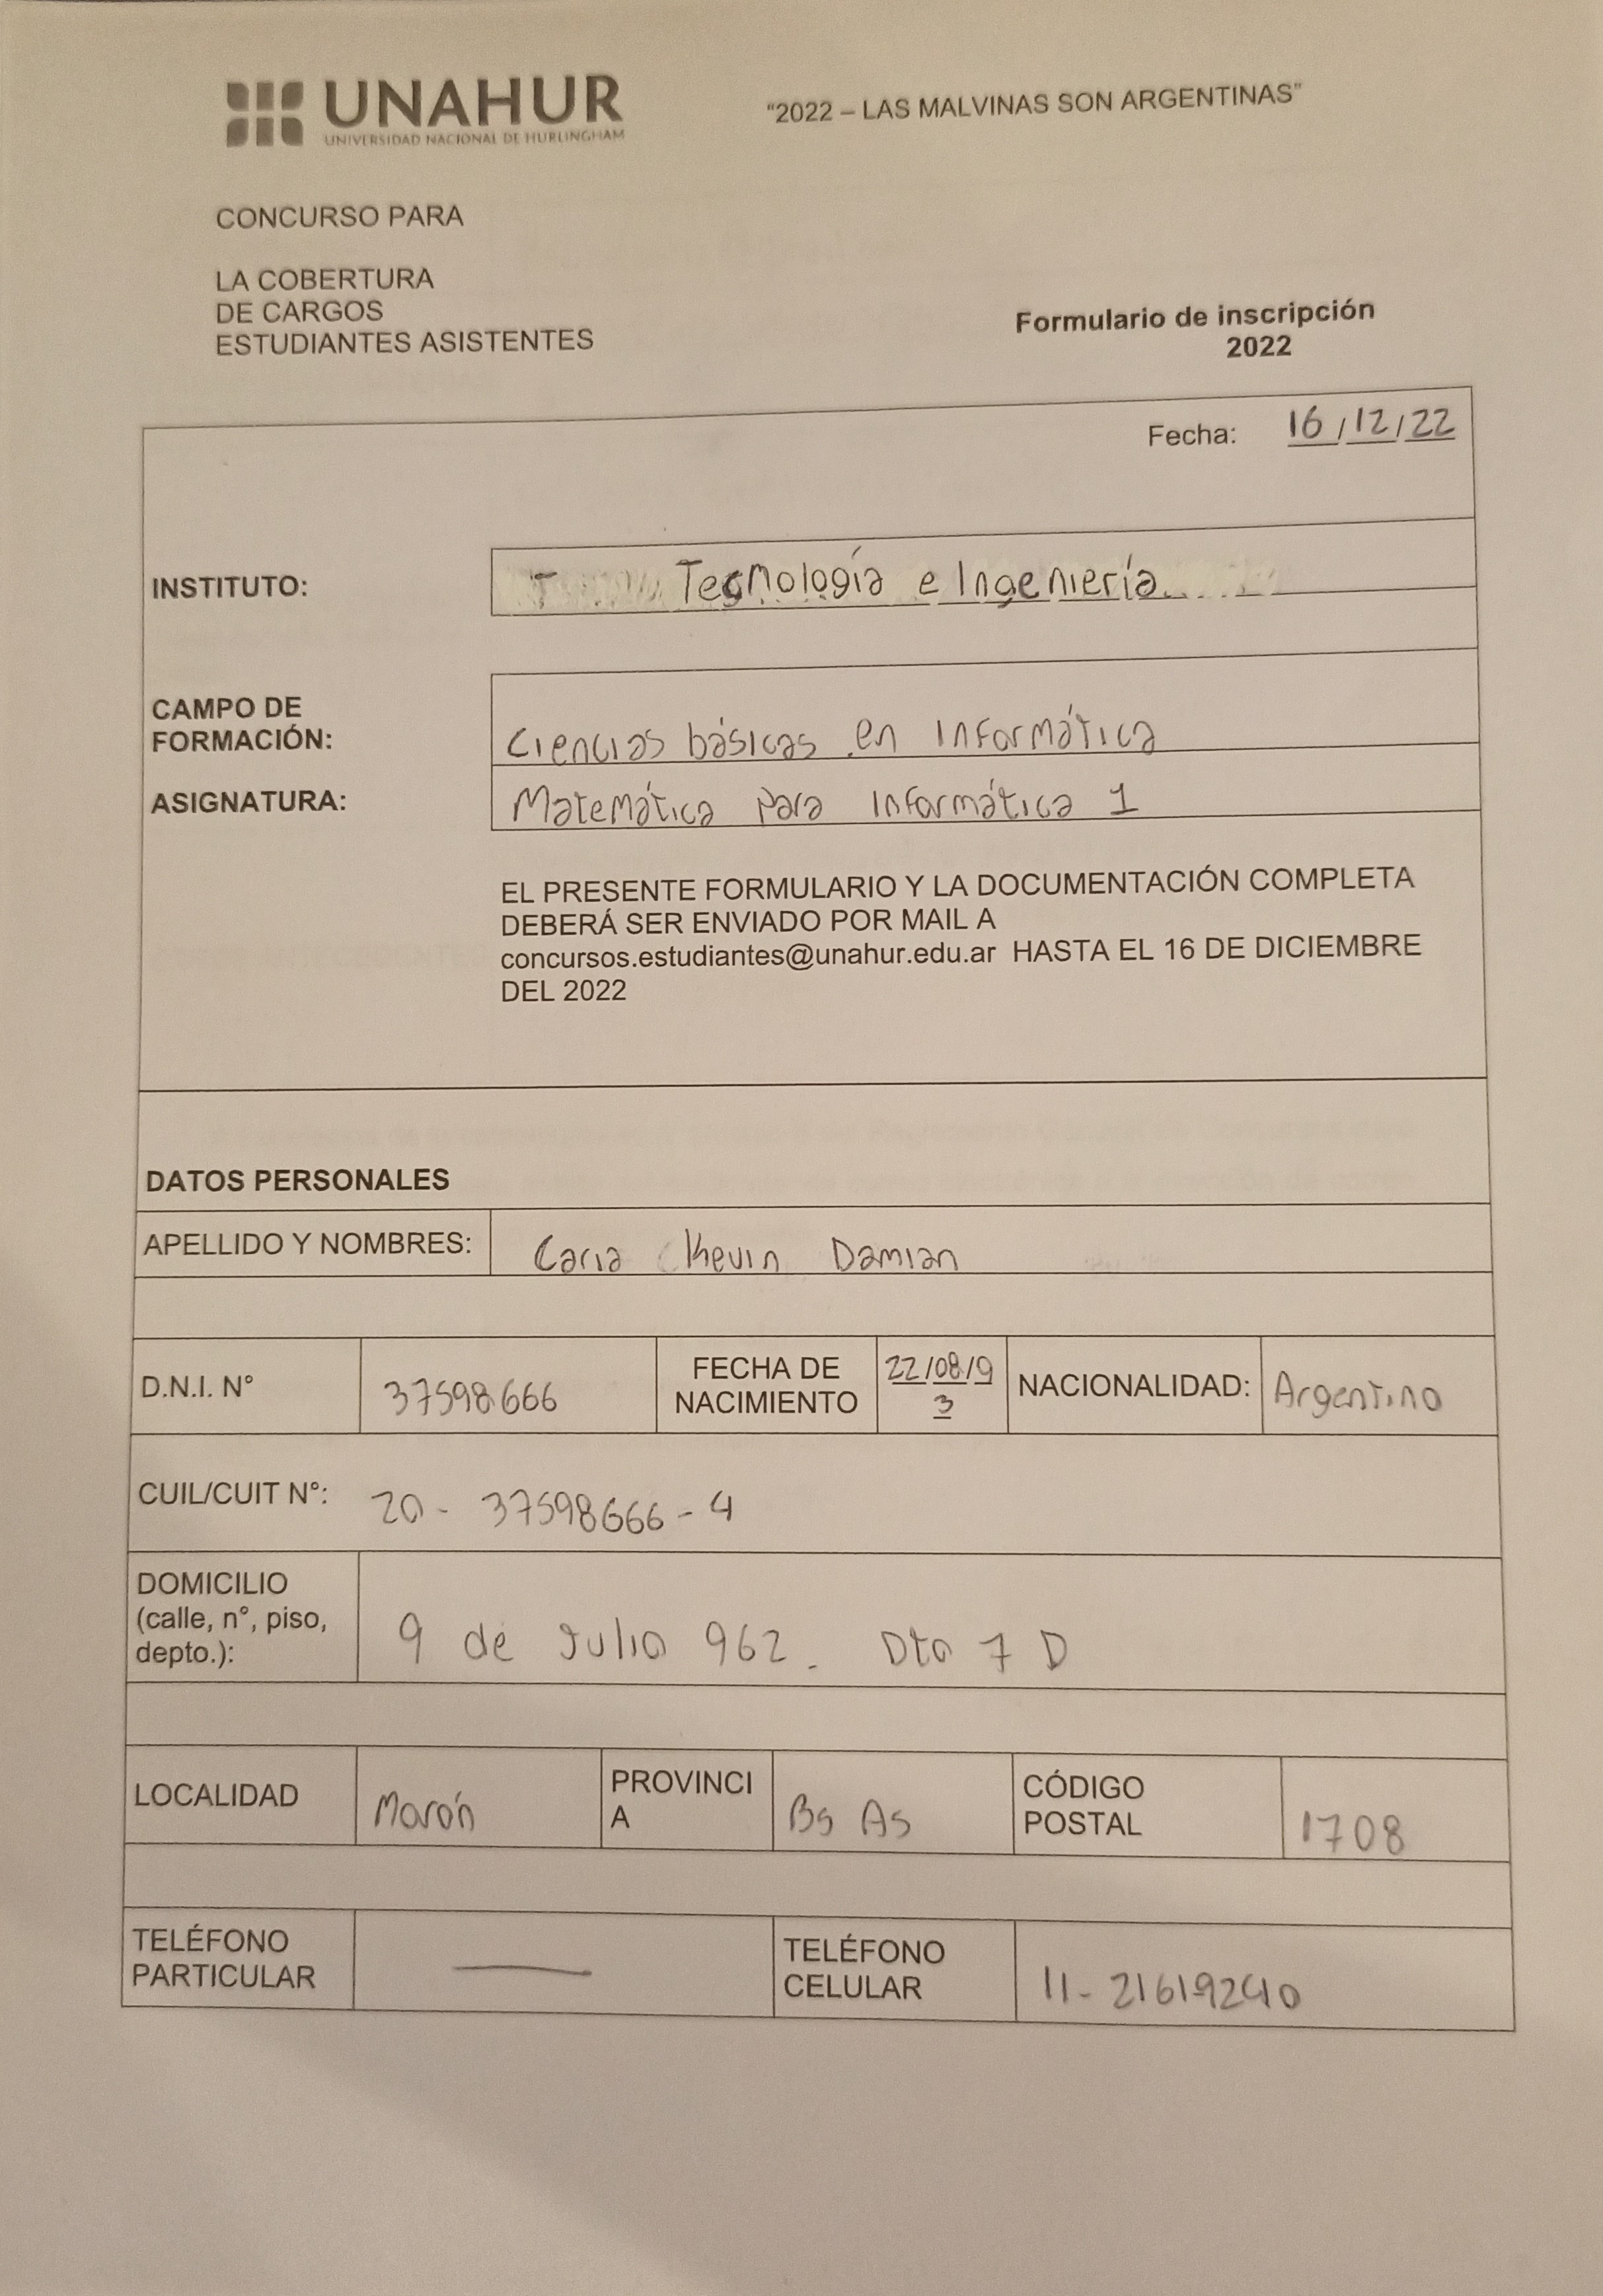 UNAHUR
UNIVERSIDAD NACIONAL DE HURLINGHAM
“2022 – LAS MALVINAS SON ARGENTINAS”
CONCURSO PARA
LA COBERTURA
DE CARGOS
ESTUDIANTES ASISTENTES
Formulario de inscripción
2022
Fecha: 16/12/22
INSTITUTO: Tecnología e Ingeniería
CAMPO DE
FORMACIÓN: Ciencias básicas en Informática
ASIGNATURA: Matemática para Informática 1
EL PRESENTE FORMULARIO Y LA DOCUMENTACIÓN COMPLETA
DEBERÁ SER ENVIADO POR MAIL A
concursos.estudiantes@unahur.edu.ar HASTA EL 16 DE DICIEMBRE
DEL 2022
DATOS PERSONALES
APELLIDO Y NOMBRES: Caria Kevin Damian
D.N.I. N° 37598666
FECHA DE
NACIMIENTO
22/08/9
3
NACIONALIDAD: Argentino
CUIL/CUIT N°: 20 - 37598666 - 4
DOMICILIO
(calle, n°, piso,
depto.):
9 de Julio 962. Dto 7 D
LOCALIDAD Morón
PROVINCI
A
Bs As
CÓDIGO
POSTAL
1708
TELÉFONO
PARTICULAR
TELÉFONO
CELULAR
11 - 21619240